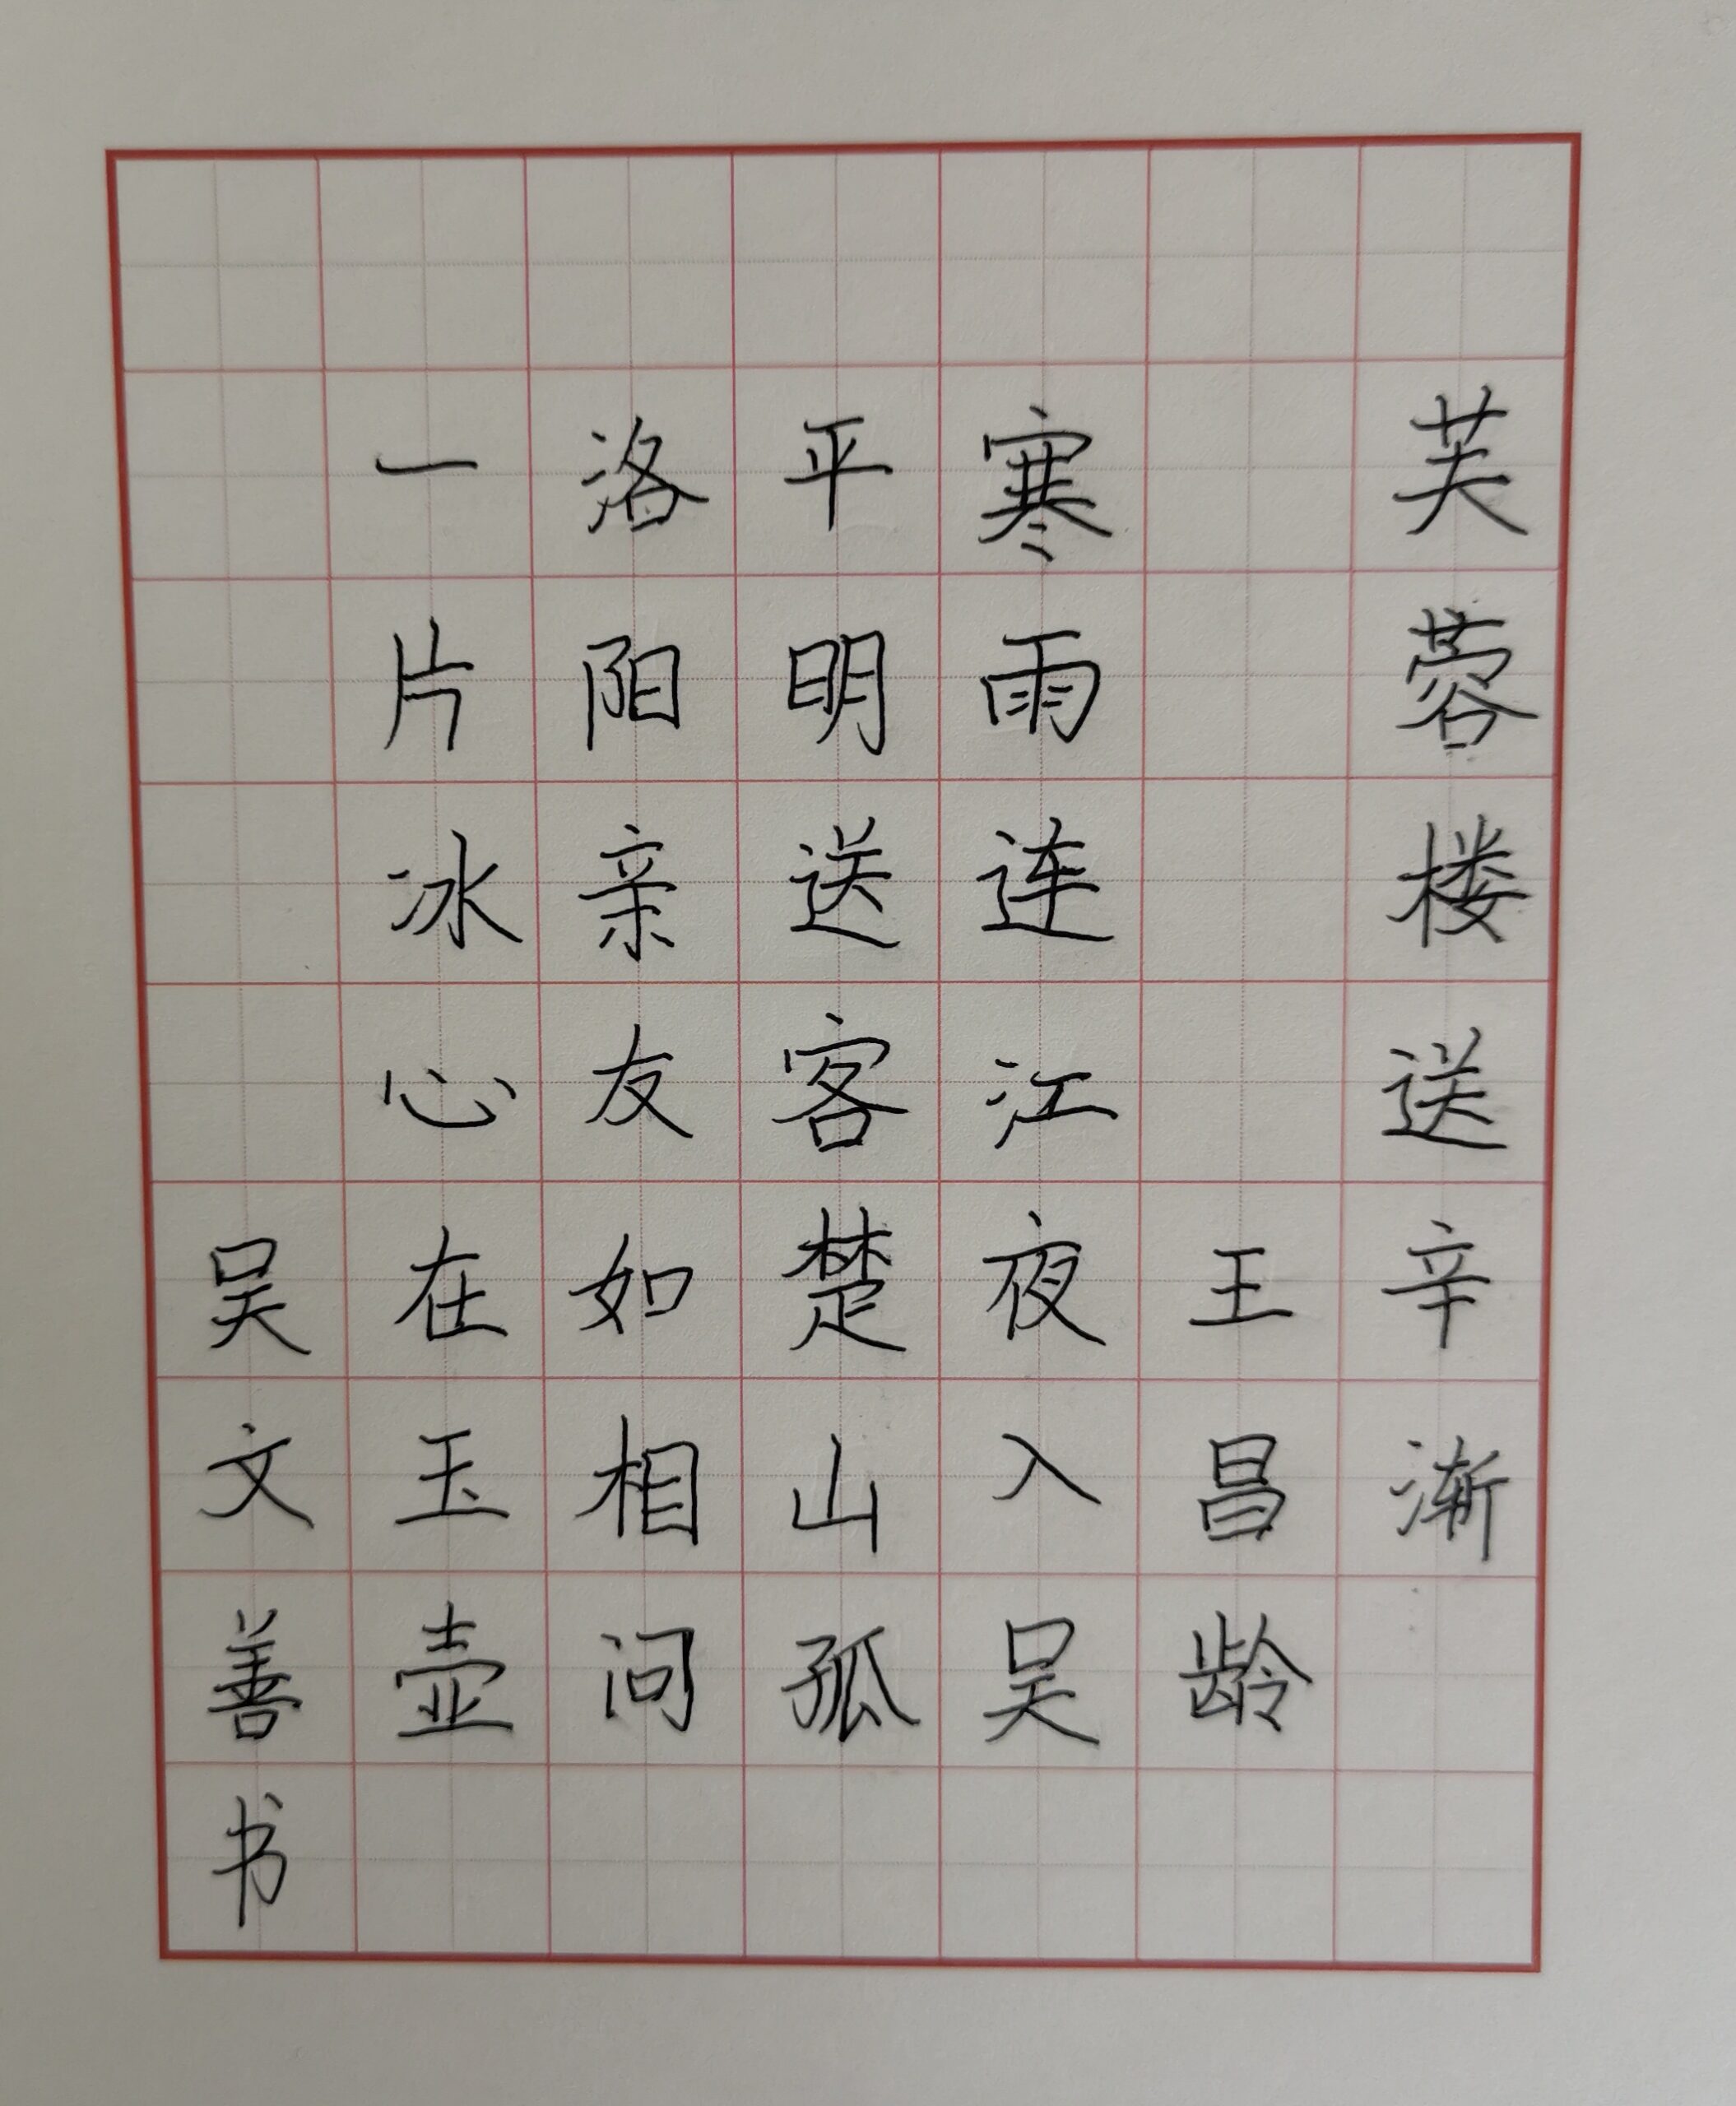 芙蓉楼送辛渐
王昌龄
寒雨连江夜入吴
平明送客楚山孤
洛阳亲友如相问
一片冰心在玉壶
吴文善书